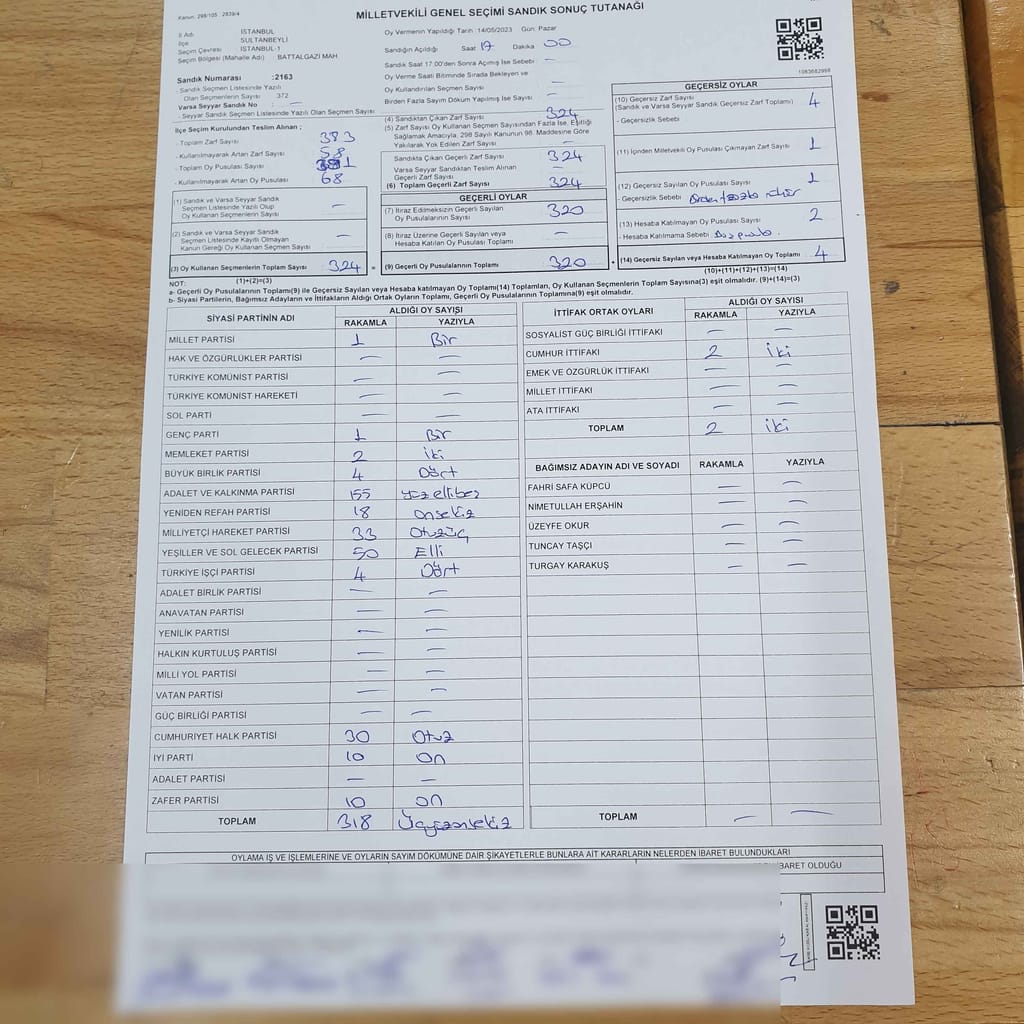 Kanun: 298/105 : 2839/4
MİLLETVEKİLİ GENEL SEÇİMİ SANDIK SONUÇ TUTANAĞI
İl Adı İSTANBUL
İlçe SULTANBEYLİ
Seçim Çevresi İSTANBUL-1
Seçim Bölgesi (Mahalle Adı) BATTALGAZİ MAH
Sandık Numarası :2163
- Sandık Seçmen Listesinde Yazılı
Olan Seçmenlerin Sayısı 372
Varsa Seyyar Sandık No : —
- Seyyar Sandık Seçmen Listesinde Yazılı Olan Seçmen Sayısı
İlçe Seçim Kurulundan Teslim Alınan ;
- Toplam Zarf Sayısı 383
- Kullanılmayarak Artan Zarf Sayısı 58
- Toplam Oy Pusulası Sayısı
- Kullanılmayarak Artan Oy Pusulası 68
(1) Sandık ve Varsa Seyyar Sandık
Seçmen Listesinde Yazılı Olup
Oy Kullanan Seçmenlerin Sayısı —
(2) Sandık ve Varsa Seyyar Sandık
Seçmen Listesinde Kayıtlı Olmayan
Kanun Gereği Oy Kullanan Seçmen Sayısı —
(3) Oy Kullanan Seçmenlerin Toplam Sayısı 324 =
(1)+(2)=(3)
Oy Vermenin Yapıldığı Tarih :14/05/2023 Gün: Pazar
Sandığın Açıldığı Saat 17 Dakika 00
Sandık Saat 17:00'den Sonra Açılmış İse Sebebi —
Oy Verme Saati Bitiminde Sırada Bekleyen ve
Oy Kullandırılan Seçmen Sayısı —
Birden Fazla Sayım Döküm Yapılmış İse Sayısı —
(4) Sandıktan Çıkan Zarf Sayısı 324
(5) Zarf Sayısı Oy Kullanan Seçmen Sayısından Fazla İse, Eşitliği
Sağlamak Amacıyla, 298 Sayılı Kanunun 98. Maddesine Göre
Yakılarak Yok Edilen Zarf Sayısı —
Sandıkta Çıkan Geçerli Zarf Sayısı 324
Varsa Seyyar Sandıktan Teslim Alınan
Geçerli Zarf Sayısı —
(6) Toplam Geçerli Zarf Sayısı 324
GEÇERLİ OYLAR
(7) İtiraz Edilmeksizin Geçerli Sayılan
Oy Pusulalarının Sayısı 320
(8) İtiraz Üzerine Geçerli Sayılan veya
Hesaba Katılan Oy Pusulası Toplamı —
(9) Geçerli Oy Pusulalarının Toplamı 320 +
1083682998
GEÇERSİZ OYLAR
(10) Geçersiz Zarf Sayısı
(Sandık ve Varsa Seyyar Sandık Geçersiz Zarf Toplamı) 4
- Geçersizlik Sebebi
(11) İçinden Milletvekili Oy Pusulası Çıkmayan Zarf Sayısı 1
(12) Geçersiz Sayılan Oy Pusulası Sayısı 1
- Geçersizlik Sebebi
(13) Hesaba Katılmayan Oy Pusulası Sayısı 2
- Hesaba Katılmama Sebebi
(14) Geçersiz Sayılan veya Hesaba Katılmayan Oy Toplamı 4
(10)+(11)+(12)+(13)=(14)
NOT:
a- Geçerli Oy Pusulalarının Toplamı(9) ile Geçersiz Sayılan veya Hesaba katılmayan Oy Toplamı(14) Toplamları, Oy Kullanan Seçmenlerin Toplam Sayısına(3) eşit olmalıdır. (9)+(14)=(3)
b- Siyasi Partilerin, Bağımsız Adayların ve İttifakların Aldığı Ortak Oyların Toplamı, Geçerli Oy Pusulalarının Toplamına(9) eşit olmalıdır.
SİYASİ PARTİNİN ADI ALDIĞI OY SAYISI
RAKAMLA YAZIYLA
MİLLET PARTİSİ 1 Bir
HAK VE ÖZGÜRLÜKLER PARTİSİ — —
TÜRKİYE KOMÜNİST PARTİSİ — —
TÜRKİYE KOMÜNİST HAREKETİ — —
SOL PARTİ — —
GENÇ PARTİ 1 Bir
MEMLEKET PARTİSİ 2 iki
BÜYÜK BİRLİK PARTİSİ 4 Dört
ADALET VE KALKINMA PARTİSİ 155 yüzellibeş
YENİDEN REFAH PARTİSİ 18 onsekiz
MİLLİYETÇİ HAREKET PARTİSİ 33 Otuzüç
YEŞİLLER VE SOL GELECEK PARTİSİ 50 Elli
TÜRKİYE İŞÇİ PARTİSİ 4 Dört
ADALET BİRLİK PARTİSİ — —
ANAVATAN PARTİSİ — —
YENİLİK PARTİSİ — —
HALKIN KURTULUŞ PARTİSİ — —
MİLLİ YOL PARTİSİ — —
VATAN PARTİSİ — —
GÜÇ BİRLİĞİ PARTİSİ — —
CUMHURİYET HALK PARTİSİ 30 Otuz
İYİ PARTİ 10 on
ADALET PARTİSİ — —
ZAFER PARTİSİ 10 on
TOPLAM 318 Üçyüzonsekiz
İTTİFAK ORTAK OYLARI ALDIĞI OY SAYISI
RAKAMLA YAZIYLA
SOSYALİST GÜÇ BİRLİĞİ İTTİFAKI — —
CUMHUR İTTİFAKI 2 iki
EMEK VE ÖZGÜRLÜK İTTİFAKI — —
MİLLET İTTİFAKI — —
ATA İTTİFAKI — —
TOPLAM 2 iki
BAĞIMSIZ ADAYIN ADI VE SOYADI RAKAMLA YAZIYLA
FAHRİ SAFA KÜPCÜ — —
NİMETULLAH ERŞAHİN — —
ÜZEYFE OKUR — —
TUNCAY TAŞÇI — —
TURGAY KARAKUŞ — —
TOPLAM — —
OYLAMA İŞ VE İŞLEMLERİNE VE OYLARIN SAYIM DÖKÜMÜNE DAİR ŞİKAYETLERLE BUNLARA AİT KARARLARIN NELERDEN İBARET BULUNDUKLARI
İBARET OLDUĞU